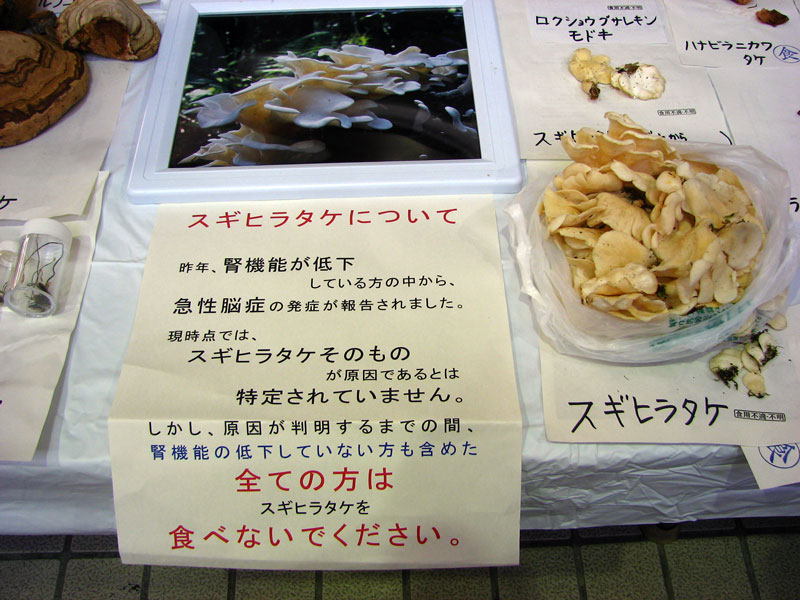 ロクショウグサレキン
モドキ
ハナビラニカワ
タケ
食
スギヒラタケについて
昨年、腎機能が低下
している方の中から、
急性脳症の発症が報告されました。
現時点では、
スギヒラタケそのもの
が原因であるとは
特定されていません。
しかし、原因が判明するまでの間、
腎機能の低下していない方も含めた
全ての方は
スギヒラタケを
食べないでください。
スギヒラタケ
食用不適・不明